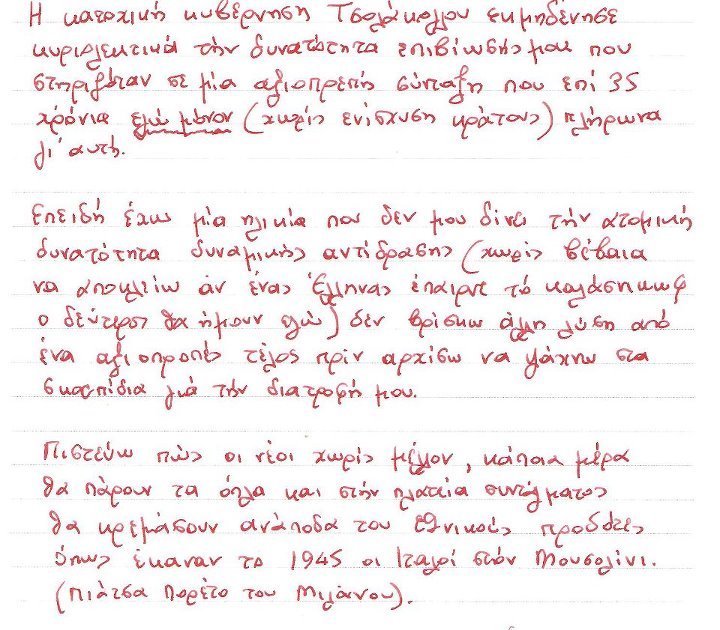 Η κατοχική κυβέρνηση Τσολάκογλου εκμηδένησε
κυριολεκτικά τήν δυνατότητα επιβίωσής μου που
στηριζόταν σε μία αξιοπρεπή σύνταξη που επί 35
χρόνια εγώ μόνον (χωρίς ενίσχυση κράτους) πλήρωνα
γι' αυτή.
Επειδή έχω μία ηλικία που δεν μου δίνει τήν ατομική
δυνατότητα δυναμικής αντίδρασης (χωρίς βέβαια
να αποκλείω άν ένας Έλληνας έπαιρνε τό καλάσνικωφ
ο δεύτερος θα ήμουν εγώ) δέν βρίσκω άλλη λύση από
ένα αξιοπρεπές τέλος πρίν αρχίσω να ψάχνω στα
σκουπίδια γιά τήν διατροφή μου.
Πιστεύω πώς οι νέοι χωρίς μέλλον, κάποια μέρα
θα πάρουν τα όπλα και στήν πλατεία συντάγματος
θα κρεμάσουν ανάποδα του εθνικούς προδότες
όπως έκαναν το 1945 οι Ιταλοί στόν Μουσολίνι.
(Πιάτσα Πορέτο του Μιλάνου).